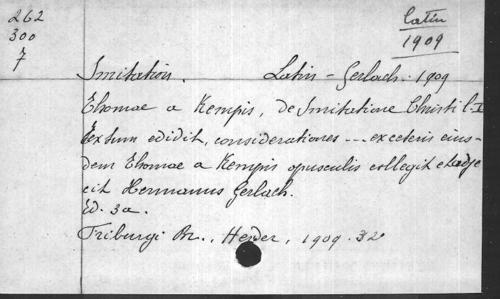 262
300
7
Latin
1909
Imitation. Latin - Gerlach. 1909
Thomae a Kempis, de Imitatione Christi l.
textum edidit, considerationes --- exceteris eius-
dem Thomae a Kempis opusculis collegit et adje
cit Hermanus Gerlach.
Ed. 3a.
Friburgi Br., Herder, 1909. 32